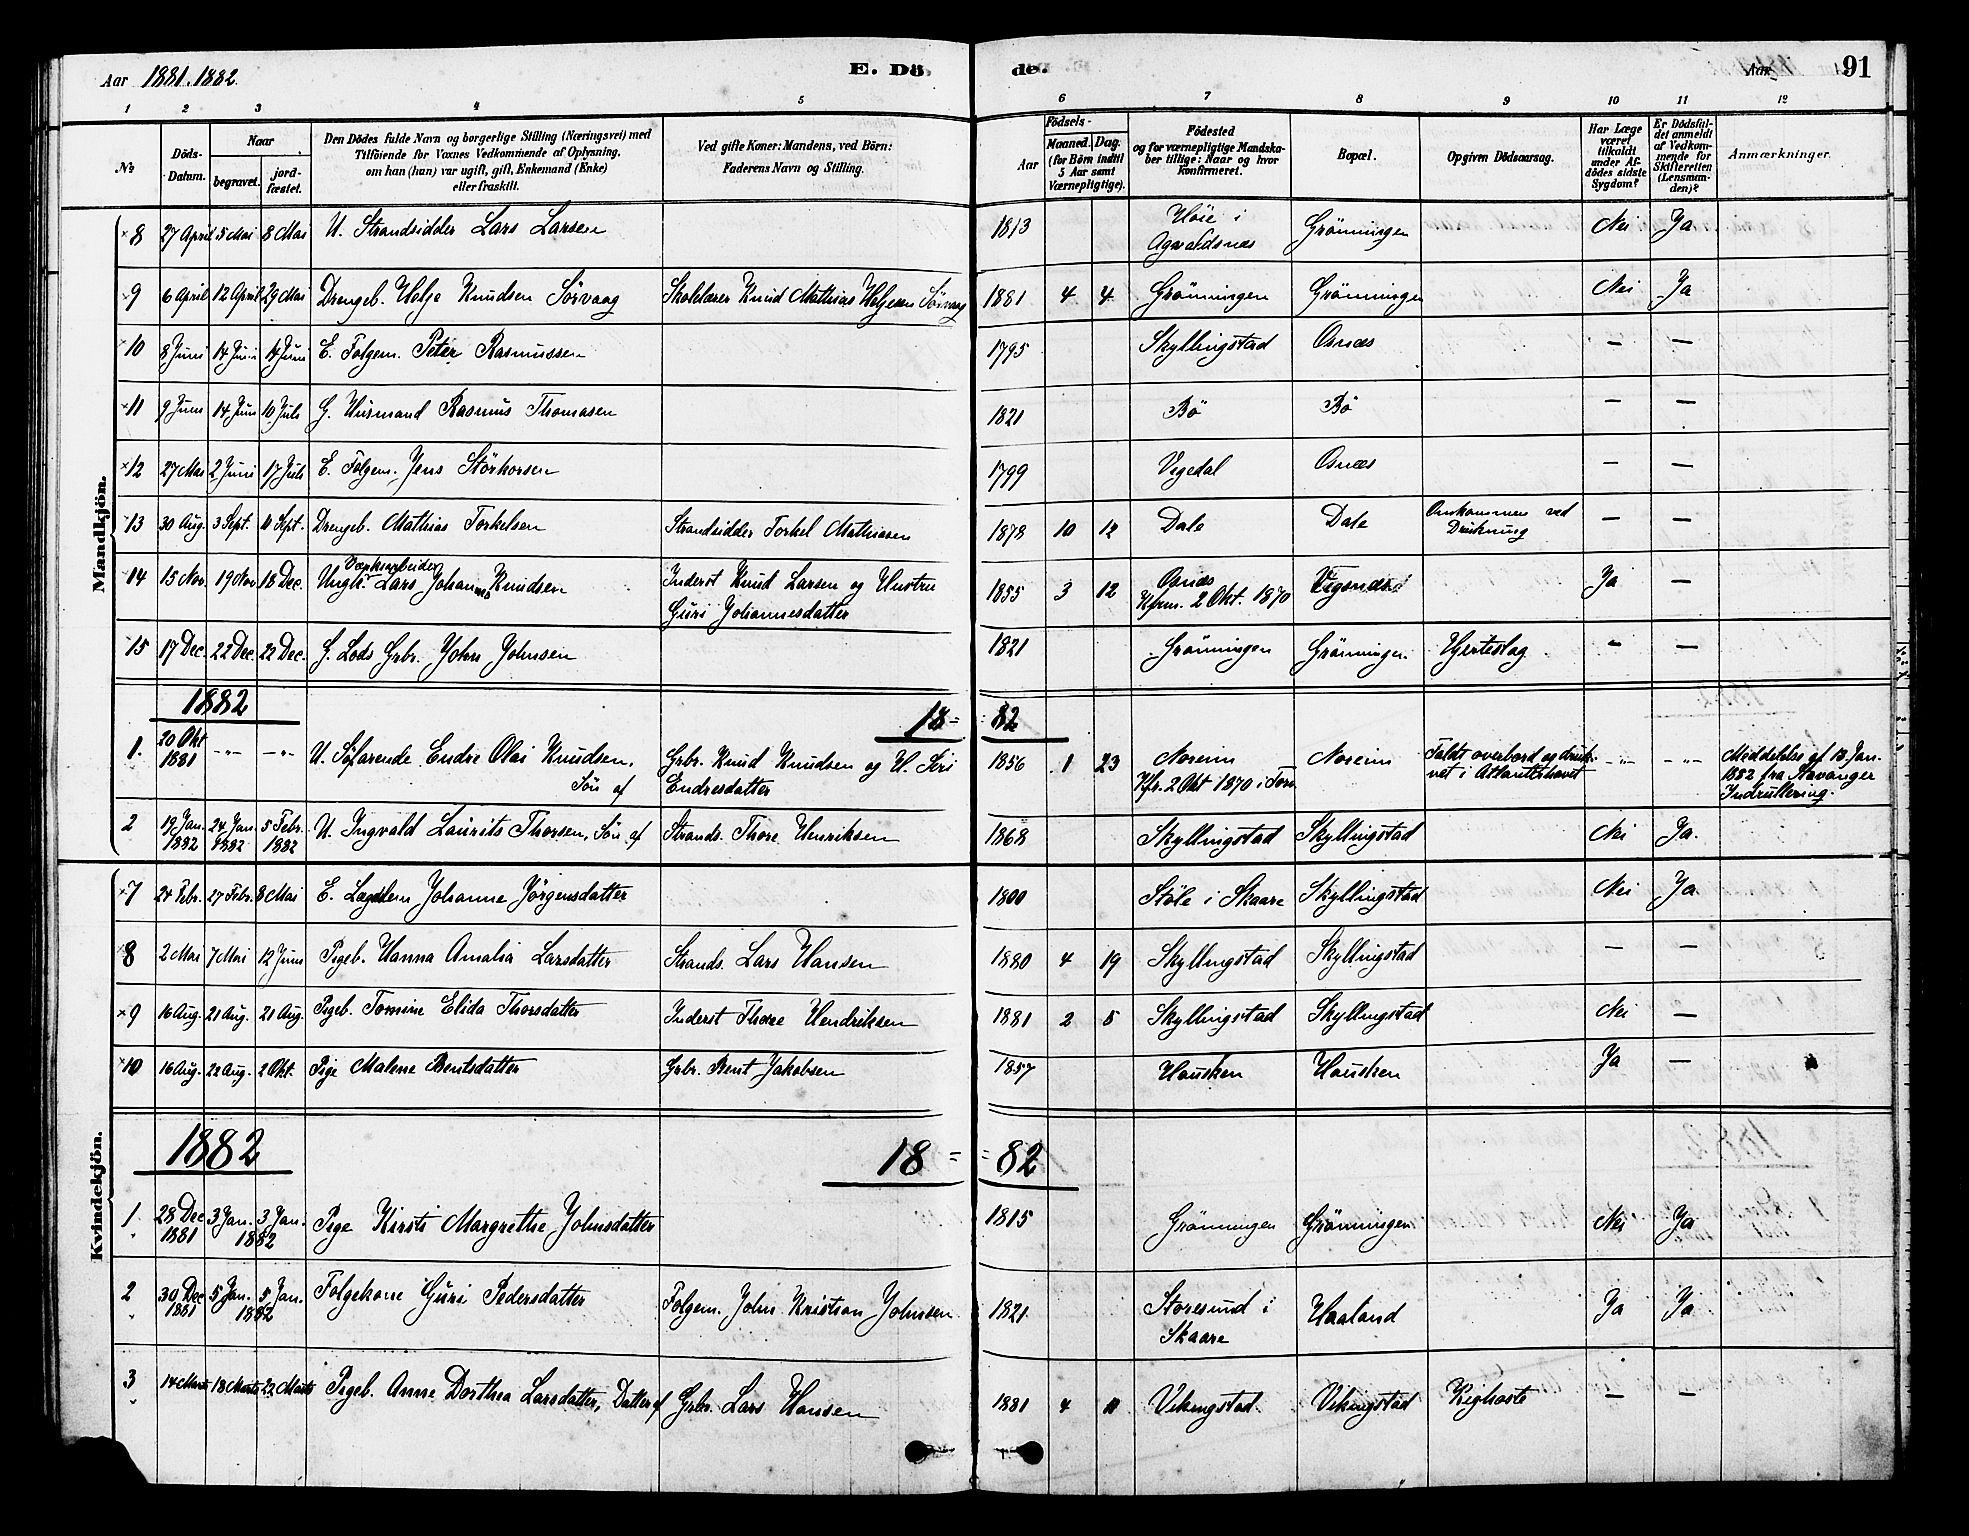 Aar 1881.1882.
E. Dö
de.
Aar
91
1 2 3 4 5 6 7 8 9 10 11 12
No
Döds-Datum.
Naar
begravet.
jord-fæstet.
Den Dödes fulde Navn og borgerlige Stilling (Næringsvei) med
Tilföiende for Voxnes Vedkommende af Oplysning,
om han (hun) var ugift, gift, Enkemand (Enke)
eller fraskilt.
Ved gifte Koner: Mandens, ved Börn:
Faderens Navn og Stilling.
Födsels-
Aar
Maaned. (for Börn indtil 5 Aar samt Værnepligtige).
Dag.
Födested
og for værnepligtige Mandska-
ber tillige: Naar og hvor
konfirmeret.
Bopæl.
Opgiven Dödsaarsag.
Har Læge
været
tilkaldt
under Af-
dödes sidste
Sygdom?
Er Dödsfal-
det anmeldt
af Vedkom-
mende for
Skifteretten
(Lensman-
den)?
Anmærkninger.
Mandkjön.
8 27 April 5 Mai 8 Mai U. Strandsidder Lars Larsen 1813 Höie i Agvaldsnæs Grönningen Nei Ja
9 6 April 12 April 29 Mai Drengeb. Helge Knudsen Sörvaag Skolelærer Knud Mathias Helgesen Sörvaag 1881 4 4 Grönningen Grönningen Nei Ja
10 8 Juni 14 Juni 14 Juni E. Folgem. Peter Rasmussen 1795 Skyllingstad Osnæs — —
11 9 Juni 14 Juni 10 Juli G. Husmand Rasmus Thomasen 1821 Bö Bö — —
12 27 Mai 2 Juni 17 Juli E. Folgem. Jens Störkorsen 1799 Vegedal Osnæs — —
13 30 Aug. 3 Sept. 11 Sept. Drengeb. Mathias Torkelsen Strandsidder Torkel Mathiasen 1878 10 12 Dale Dale Omkommen ved Drukning — —
14 15 Nov. 19 Nov 18 Dec. Ungk. Værksarbeider Lars Johannes Knudsen Inderst Knud Larsen og Hustru Guri Johannesdatter 1855 3 12 Osnæs Kfrm. 2 Okt. 1870 Vigsnæs Ja —
15 17 Dec. 22 Dec. 22 Dec. G. Lods Grbr. John Johnsen 1821 Grönningen Grönningen Hjerteslag — —
1882
18 = = 82
1. 20 Okt 1881 -"- -"- U. Söfarende Endre Olai Knudsen. Sön af Grbr. Knud Knudsen og H. Siri Endresdatter 1856 1 23 Noreim Kfr. 2 Okt 1870 i Torv. Noreim Faldt overbord og druknet i Atlanterhavet -"- -"- Meddelelse af 13 Jan. 1882 fra Stavanger Indrullering.
2 19 Jan. 1882 24 Jan. 1882 5 Febr. 1882 U. Ingvald Laurits Thorsen, Sön af Strands. Thore Henriksen 1868 Skyllingstad Skyllingstad Nei Ja.
Kvindekjön.
7 24 Febr. 27 Febr. 8 Mai E. Lægdslem Johanne Jörgensdatter 1800 Stöle i Skaare Skyllingstad Nei Ja
8 2 Mai 7 Mai 12 Juni Pigeb. Hanna Amalia Larsdatter Strands. Lars Hansen 1880 4 19 Skyllingstad Skyllingstad — —
9 16 Aug. 21 Aug. 21 Aug. Pigeb. Tomine Elida Thorsdatter Inderst Thore Hendriksen 1881 2 5 Skyllingstad Skyllingstad Nei —
10 16 Aug. 22 Aug. 2 Okt. Pige Malene Bentsdatter Grbr. Bent Jakobsen 1857 Housken Housken Ja —
1882
18 = = 82
1. 28 Dec 1881 3 Jan. 3 Jan. 1882 Pige Kirsti Margrethe Johnsdatter 1815 Grönningen Grönningen Nei Ja
2 30 Dec 1881 5 Jan. 5 Jan. 1882 Folgekone Guri Pedersdatter Folgem. John Kristian Johnsen 1821 Storesund i Skaare Haaland Ja Ja
3 14 Marts 18 Marts 22 Marts Pigeb. Anne Dorthea Larsdatter, Datter af Grbr. Lars Hansen 1881 4 11 Vikingstad. Vikingstad Kighoste — —